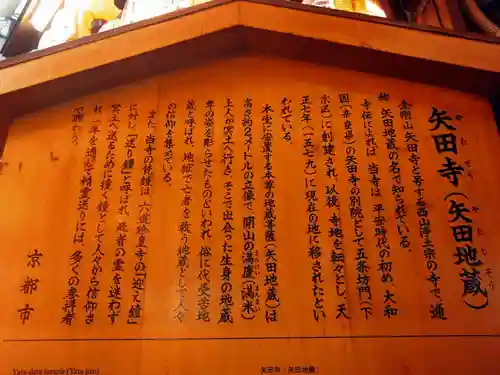 矢田寺（矢田地蔵）
やたでら　やたじぞう
金剛山矢田寺と号する西山浄土宗の寺で、通
称 矢田地蔵の名で知られている。
寺伝によれば、当寺は、平安時代の初め、大和
国（奈良県）の矢田寺の別院として五条坊門（下
京区）に創建され、以後、寺地を転々とし、天
正七年（一五七九）に現在の地に移されたとい
われている。
本堂に安置する本尊の地蔵菩薩（矢田地蔵）は
高さ約2メートルの立像で、開山の満慶（満米）
上人が冥土へ行き、そこで出会った生身の地蔵
尊の姿を彫らせたものといわれ、俗に代受苦地
蔵と呼ばれ、地獄で亡者を救う地蔵として人々
の信仰を集めている。
また、当寺の梵鐘は、六道珍皇寺の「迎え鐘」
に対し、「送り鐘」と呼ばれ、死者の霊を迷わず
冥土へ送るために撞く鐘として人々から信仰さ
れ、一年を通じて精霊送りには、多くの参拝者
で賑わう。
京都市
Yata-dera temple (Yata-jizo)
矢田寺（矢田地蔵）